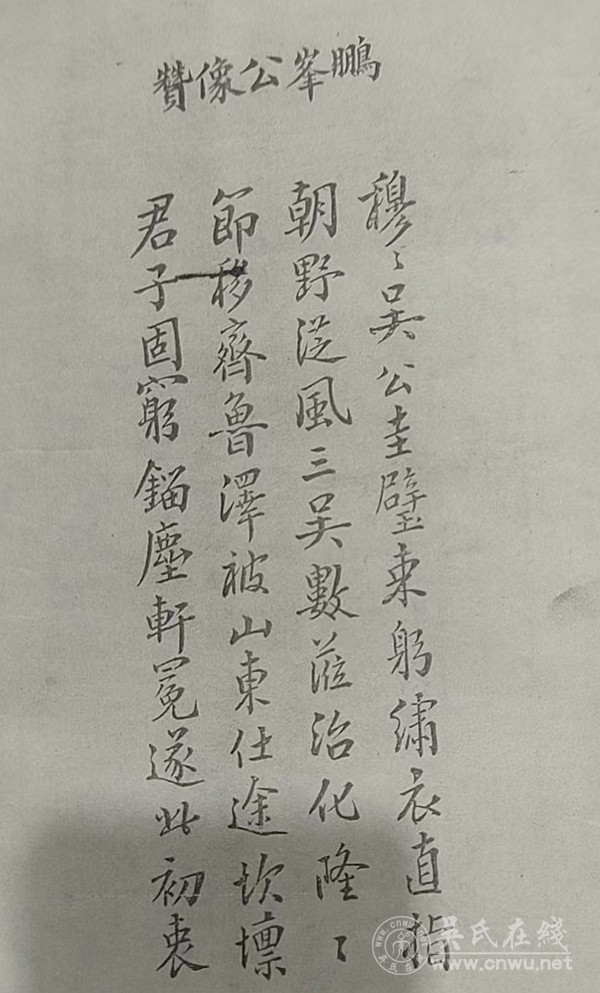 鵬峯公像贊
穆〻吴公圭璧束躬繡衣直指
朝野从風三吴數蒞治化隆〻
節移齊魯澤被山東仕途坎壈
君子固窮錙塵軒冕遂此初衷
吴氏在綫
www.cnwu.net